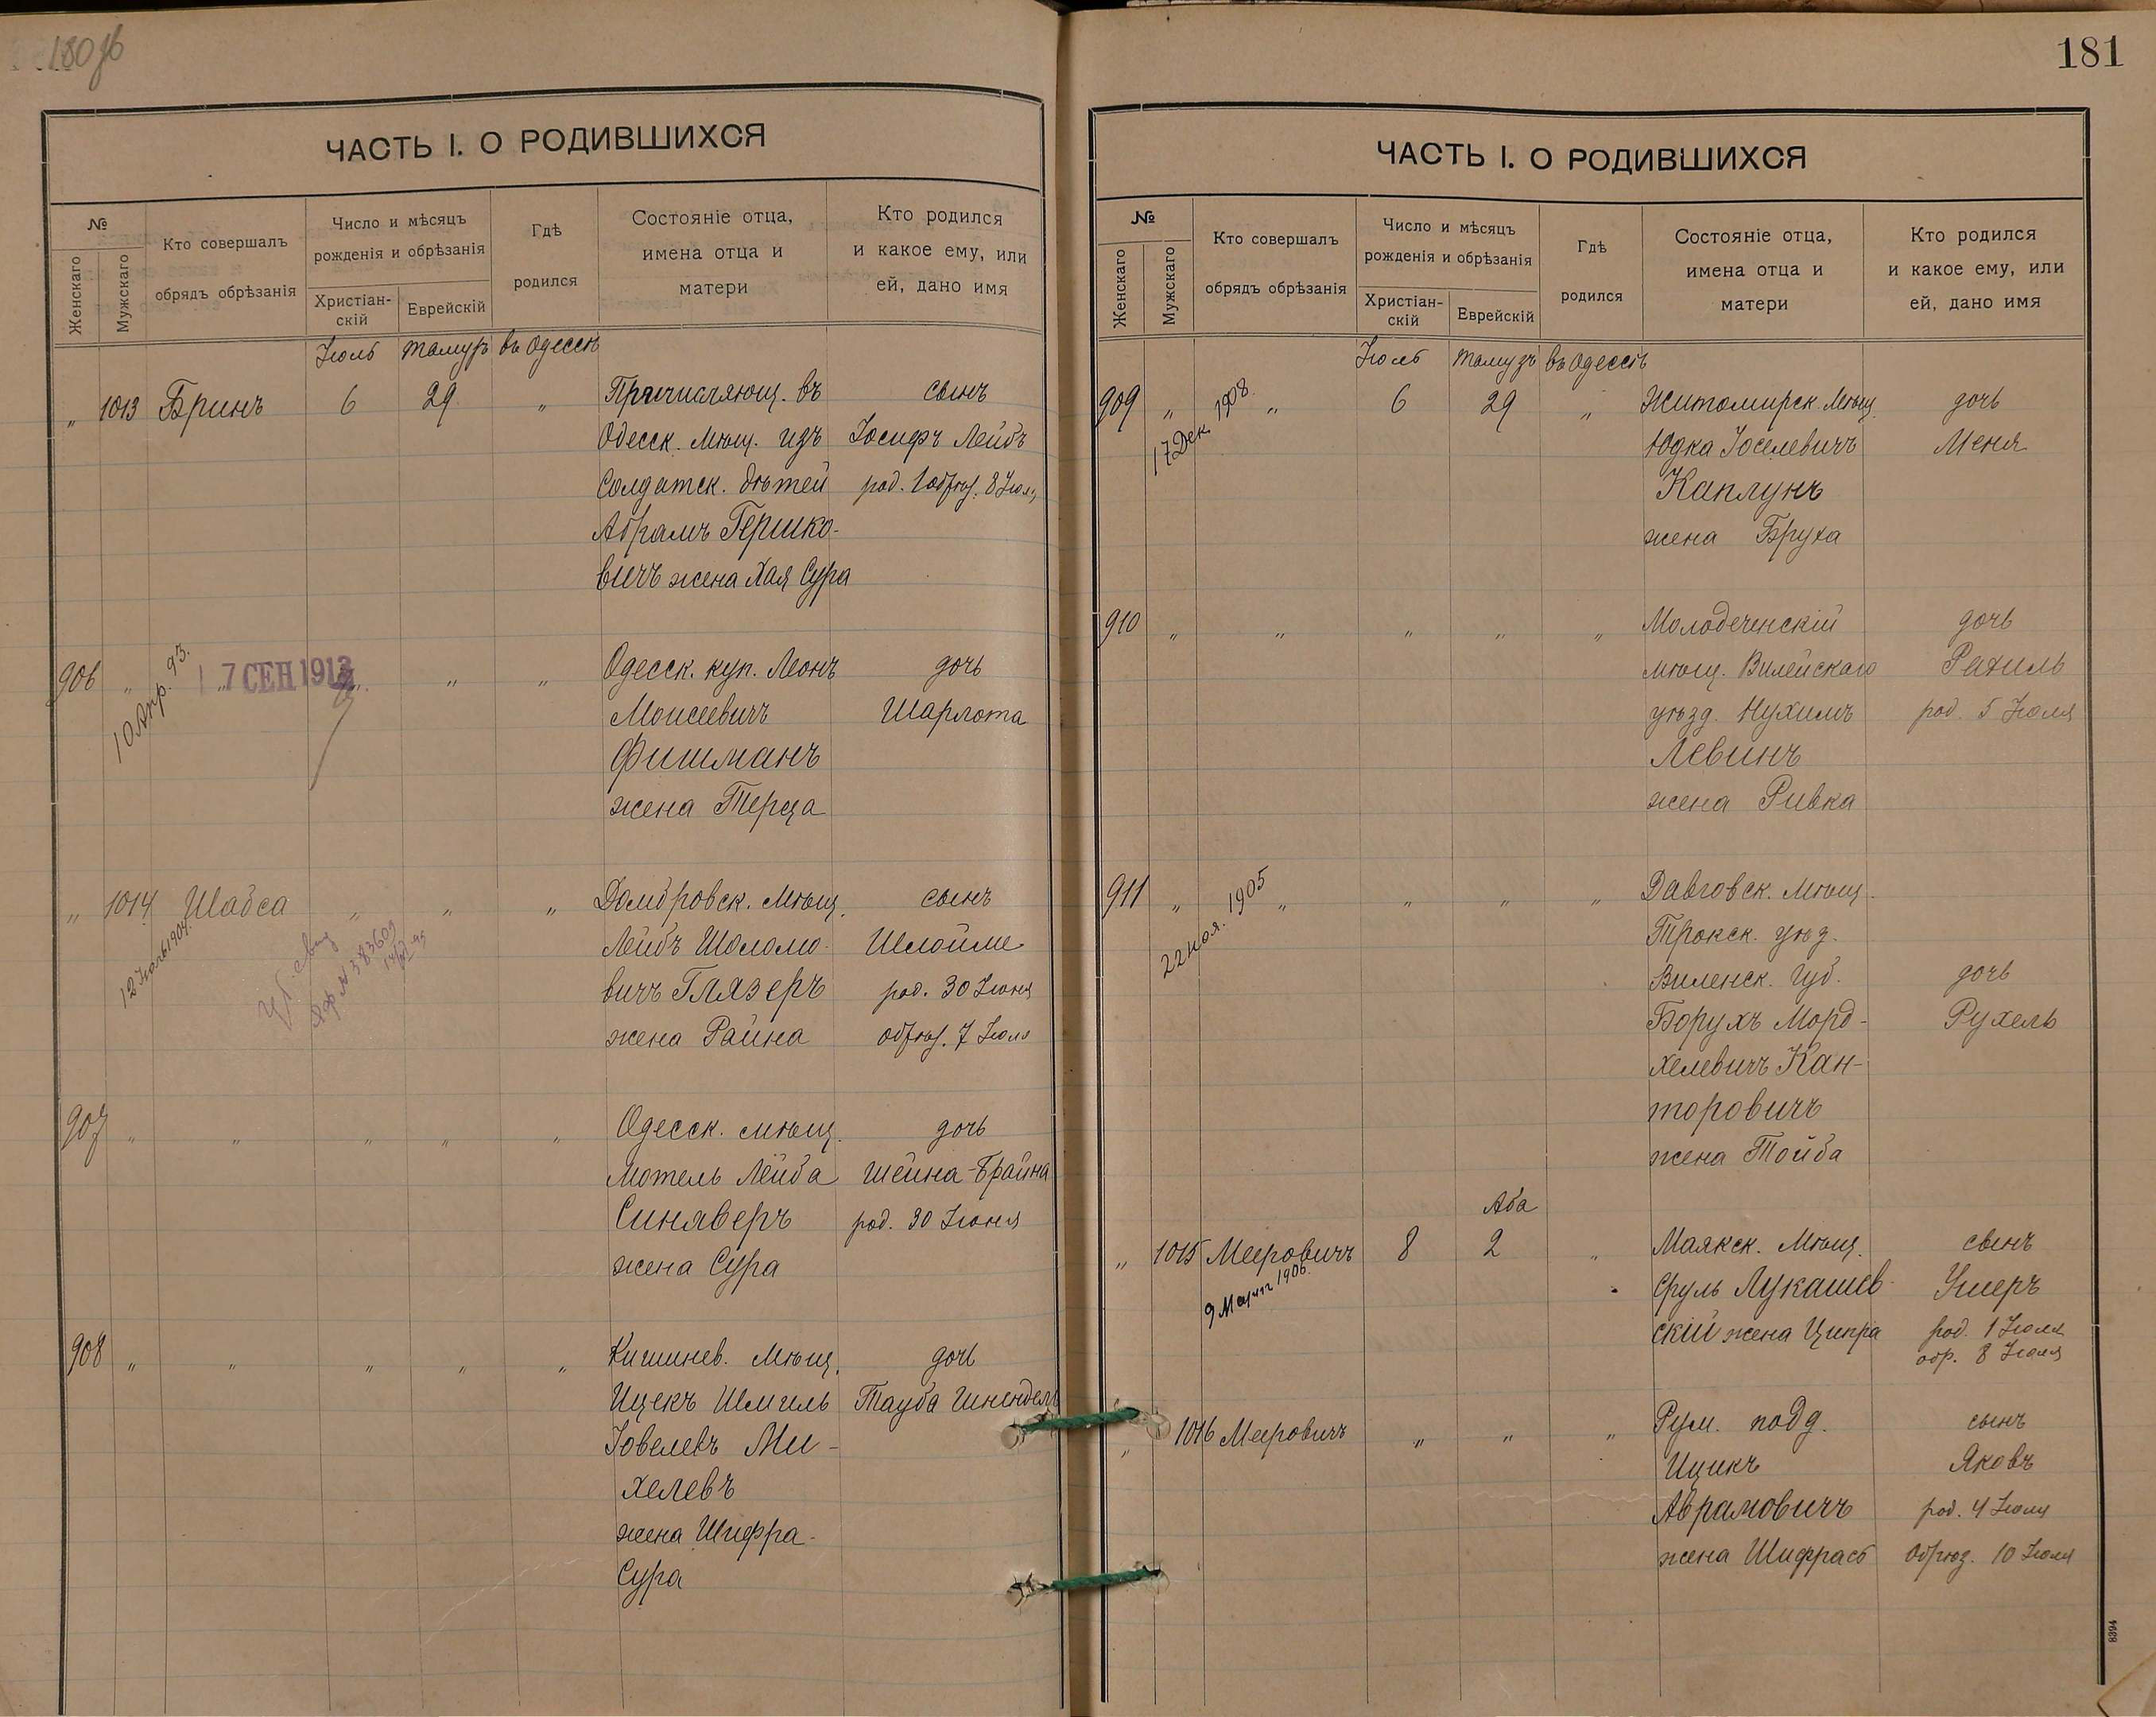 180 об
ЧАСТЬ I. О РОДИВШИХСЯ
№
Женскаго
Мужскаго
Кто совершалъ
обрядъ обрѣзанія
Число и мѣсяцъ
рожденія и обрѣзанія
Христіан-
скій
Еврейскій
Гдѣ
родился
Состояніе отца,
имена отца и
матери
Кто родился
и какое ему, или
ей, дано имя
Іюль Тамузъ въ Одессѣ
„ 1013 Бринъ 6 29 „ Причисляющ. въ сынъ
Одесск. мѣщ. изъ Іосифъ Лейбъ
Солдатск. дѣтей род. 1 обрѣз. 8 Іюля
Абрамъ Гершко-
вичъ жена Хая Сура
906 „ „ „ „ „ Одесск. куп. Леонъ дочь
10 Апр. 93.
17 СЕН 1913
Моисеевичъ Шарлота
Фишманъ
жена Терца
„ 1014 Шабса „ „ „ Домбровск. мѣщ. сынъ
12 Іюль 1904.
Лейбъ Шоломо- Шлойме
вичъ Глязеръ род. 30 Іюня
жена Райна обрѣз. 7 Іюля
907 „ „ „ „ „ Одесск. мѣщ. дочь
Мотель Лейба Шейна-Брайна
Синяверъ род. 30 Іюня
жена Сура
908 „ „ „ „ „ Кишинев. мѣщ. дочь
Ицекъ Шмиль Тауба Шнендель
Іовелевъ Ми-
хелевъ
жена Шифра-
Сура
181
ЧАСТЬ I. О РОДИВШИХСЯ
№
Женскаго
Мужскаго
Кто совершалъ
обрядъ обрѣзанія
Число и мѣсяцъ
рожденія и обрѣзанія
Христіан-
скій
Еврейскій
Гдѣ
родился
Состояніе отца,
имена отца и
матери
Кто родился
и какое ему, или
ей, дано имя
Іюль Тамузъ въ Одессѣ
909 „ „ 6 29 „ Житомирск. мѣщ. дочь
17 Дек. 1908.
Юдка Іоселевичъ Меня
Каплунъ
жена Бруха
910 „ „ „ „ „ Молодеченскій дочь
мѣщ. Вилейскаго Рахиль
уѣзд. Нухимъ род. 5 Іюля
Левинъ
жена Ривка
911 „ „ „ „ „ Давговск. мѣщ.
22 Ноя. 1905
Трокск. уѣз.
Виленск. губ. дочь
Борухъ Морд- Рухель
хелевичъ Кан-
торовичъ
жена Тойба
Аба
„ 1015 Мееровичъ 8 2 „ Маякск. мѣщ. сынъ
9 Март 1906.
Сруль Лукашев- Ушеръ
скій жена Ципра род. 1 Іюля
обр. 8 Іюля
„ 1016 Мееровичъ „ „ „ Рум. подд. сынъ
Ицикъ Яковъ
Аврамовичъ род. 4 Іюля
жена Шифрасъ Обрѣз. 10 Іюля
8394